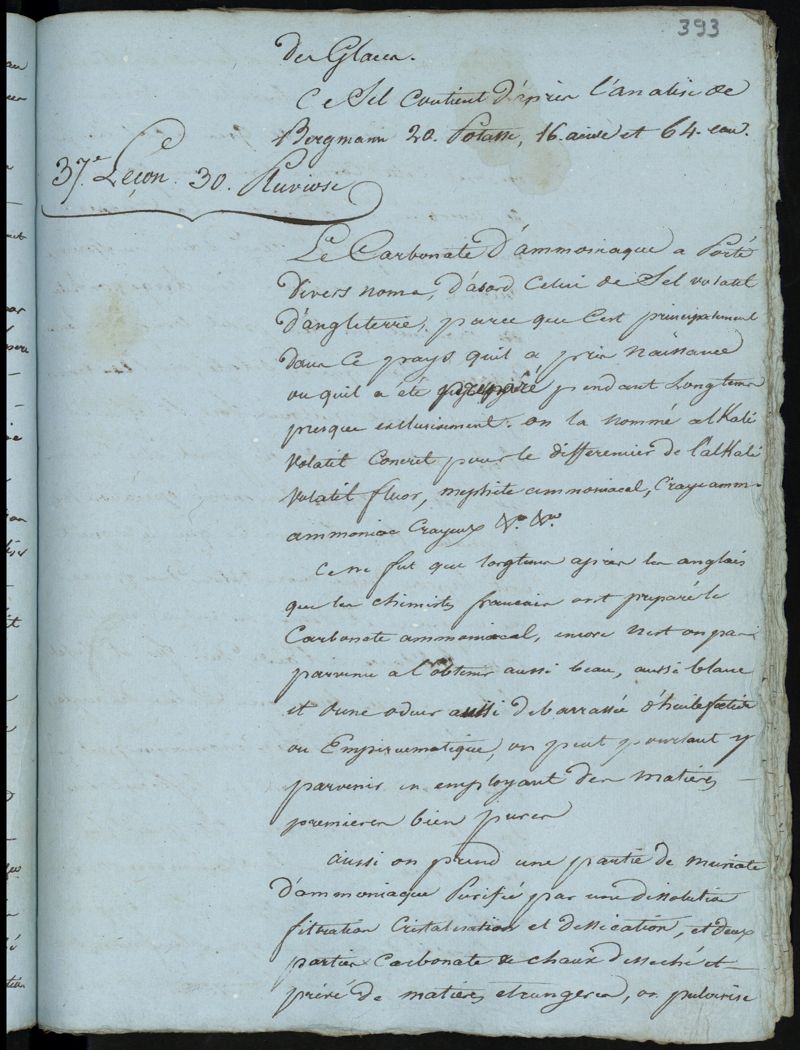 393
des Glaces.
Ce Sel contient d'après l'analise de
Bergmann 20. Potasse, 16. acide et 64. eau.
37.e Leçon. 30. Pluviose
Le Carbonate d'ammoniaque a Porté
divers noms, d'abord Celui de Sel volatil
d'angleterre, parce que C'est principalement
dans Ce pays quil a pris Naissance
ou quil a été preparé pendant Longtems
presque exclusivement. on la nommé alKali
volatil Concret pour le differencier de l'alKali
volatil fluor, mephite ammoniacal, Craye amm-
ammoniac Crayeux &.a &.a
Ce ne fut que longtems après les anglais
que les chimistes francais ont preparé le
Carbonate ammoniacal, encore n'est on pas
parvenu a l'obtenir aussi beau, aussi blanc
et d'une odeur aussi debarrassée d'huile foetide
ou Empireumatique, on peut pourtant y
parvenir en employant des matières
premieres bien pures
aussi on prend une partie de muriate
d'ammoniaque Purifié par une dissolution
filtration Cristalisation et dessication, et deux
parties Carbonate de chaux desseché et
privé de matières etrangeres, on pulverise